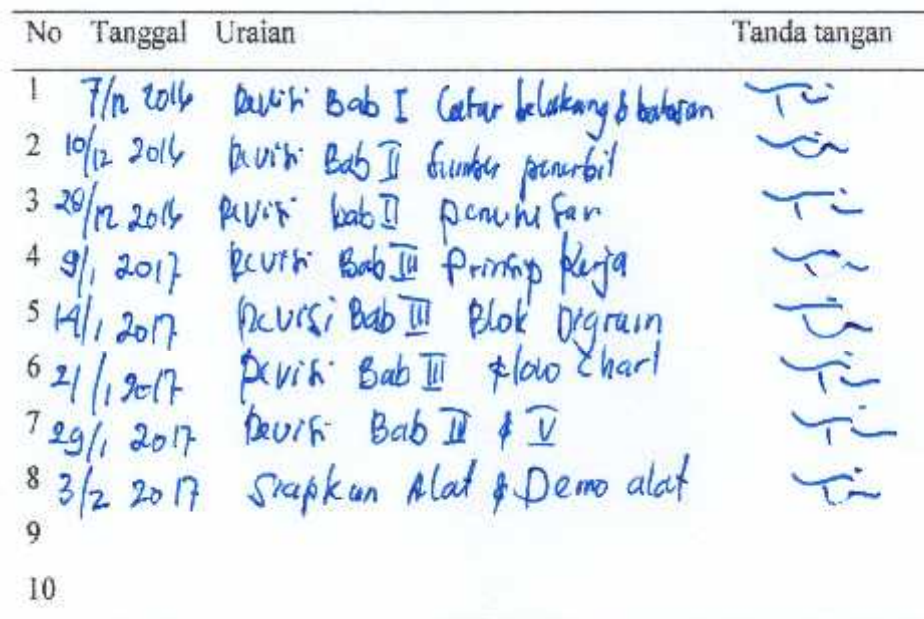 No Tanggal Uraian Tanda tangan
1 7/12 2016 Revisi Bab I Latar belakang & batasan
2 10/12 2016 Revisi Bab II Sumber penerbit
3 20/12 2016 Revisi bab II penulisan
4 9/1 2017 Revisi Bab III Prinsip Kerja
5 14/1 2017 Revisi Bab III Blok Digram
6 21/1 2017 Revisi Bab III Flow Chart
7 29/1 2017 Revisi Bab IV & V
8 3/2 2017 Siapkan Alat & Demo alat
9
10